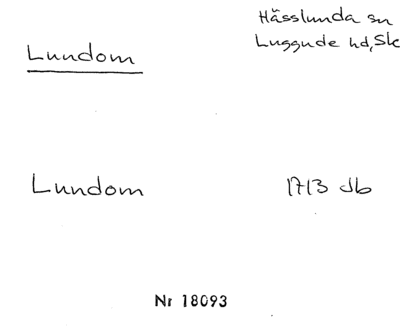 Lundom
Hässlunda sn
Luggude hd, Sk
Lundom
1713 Jb
Nr 18093